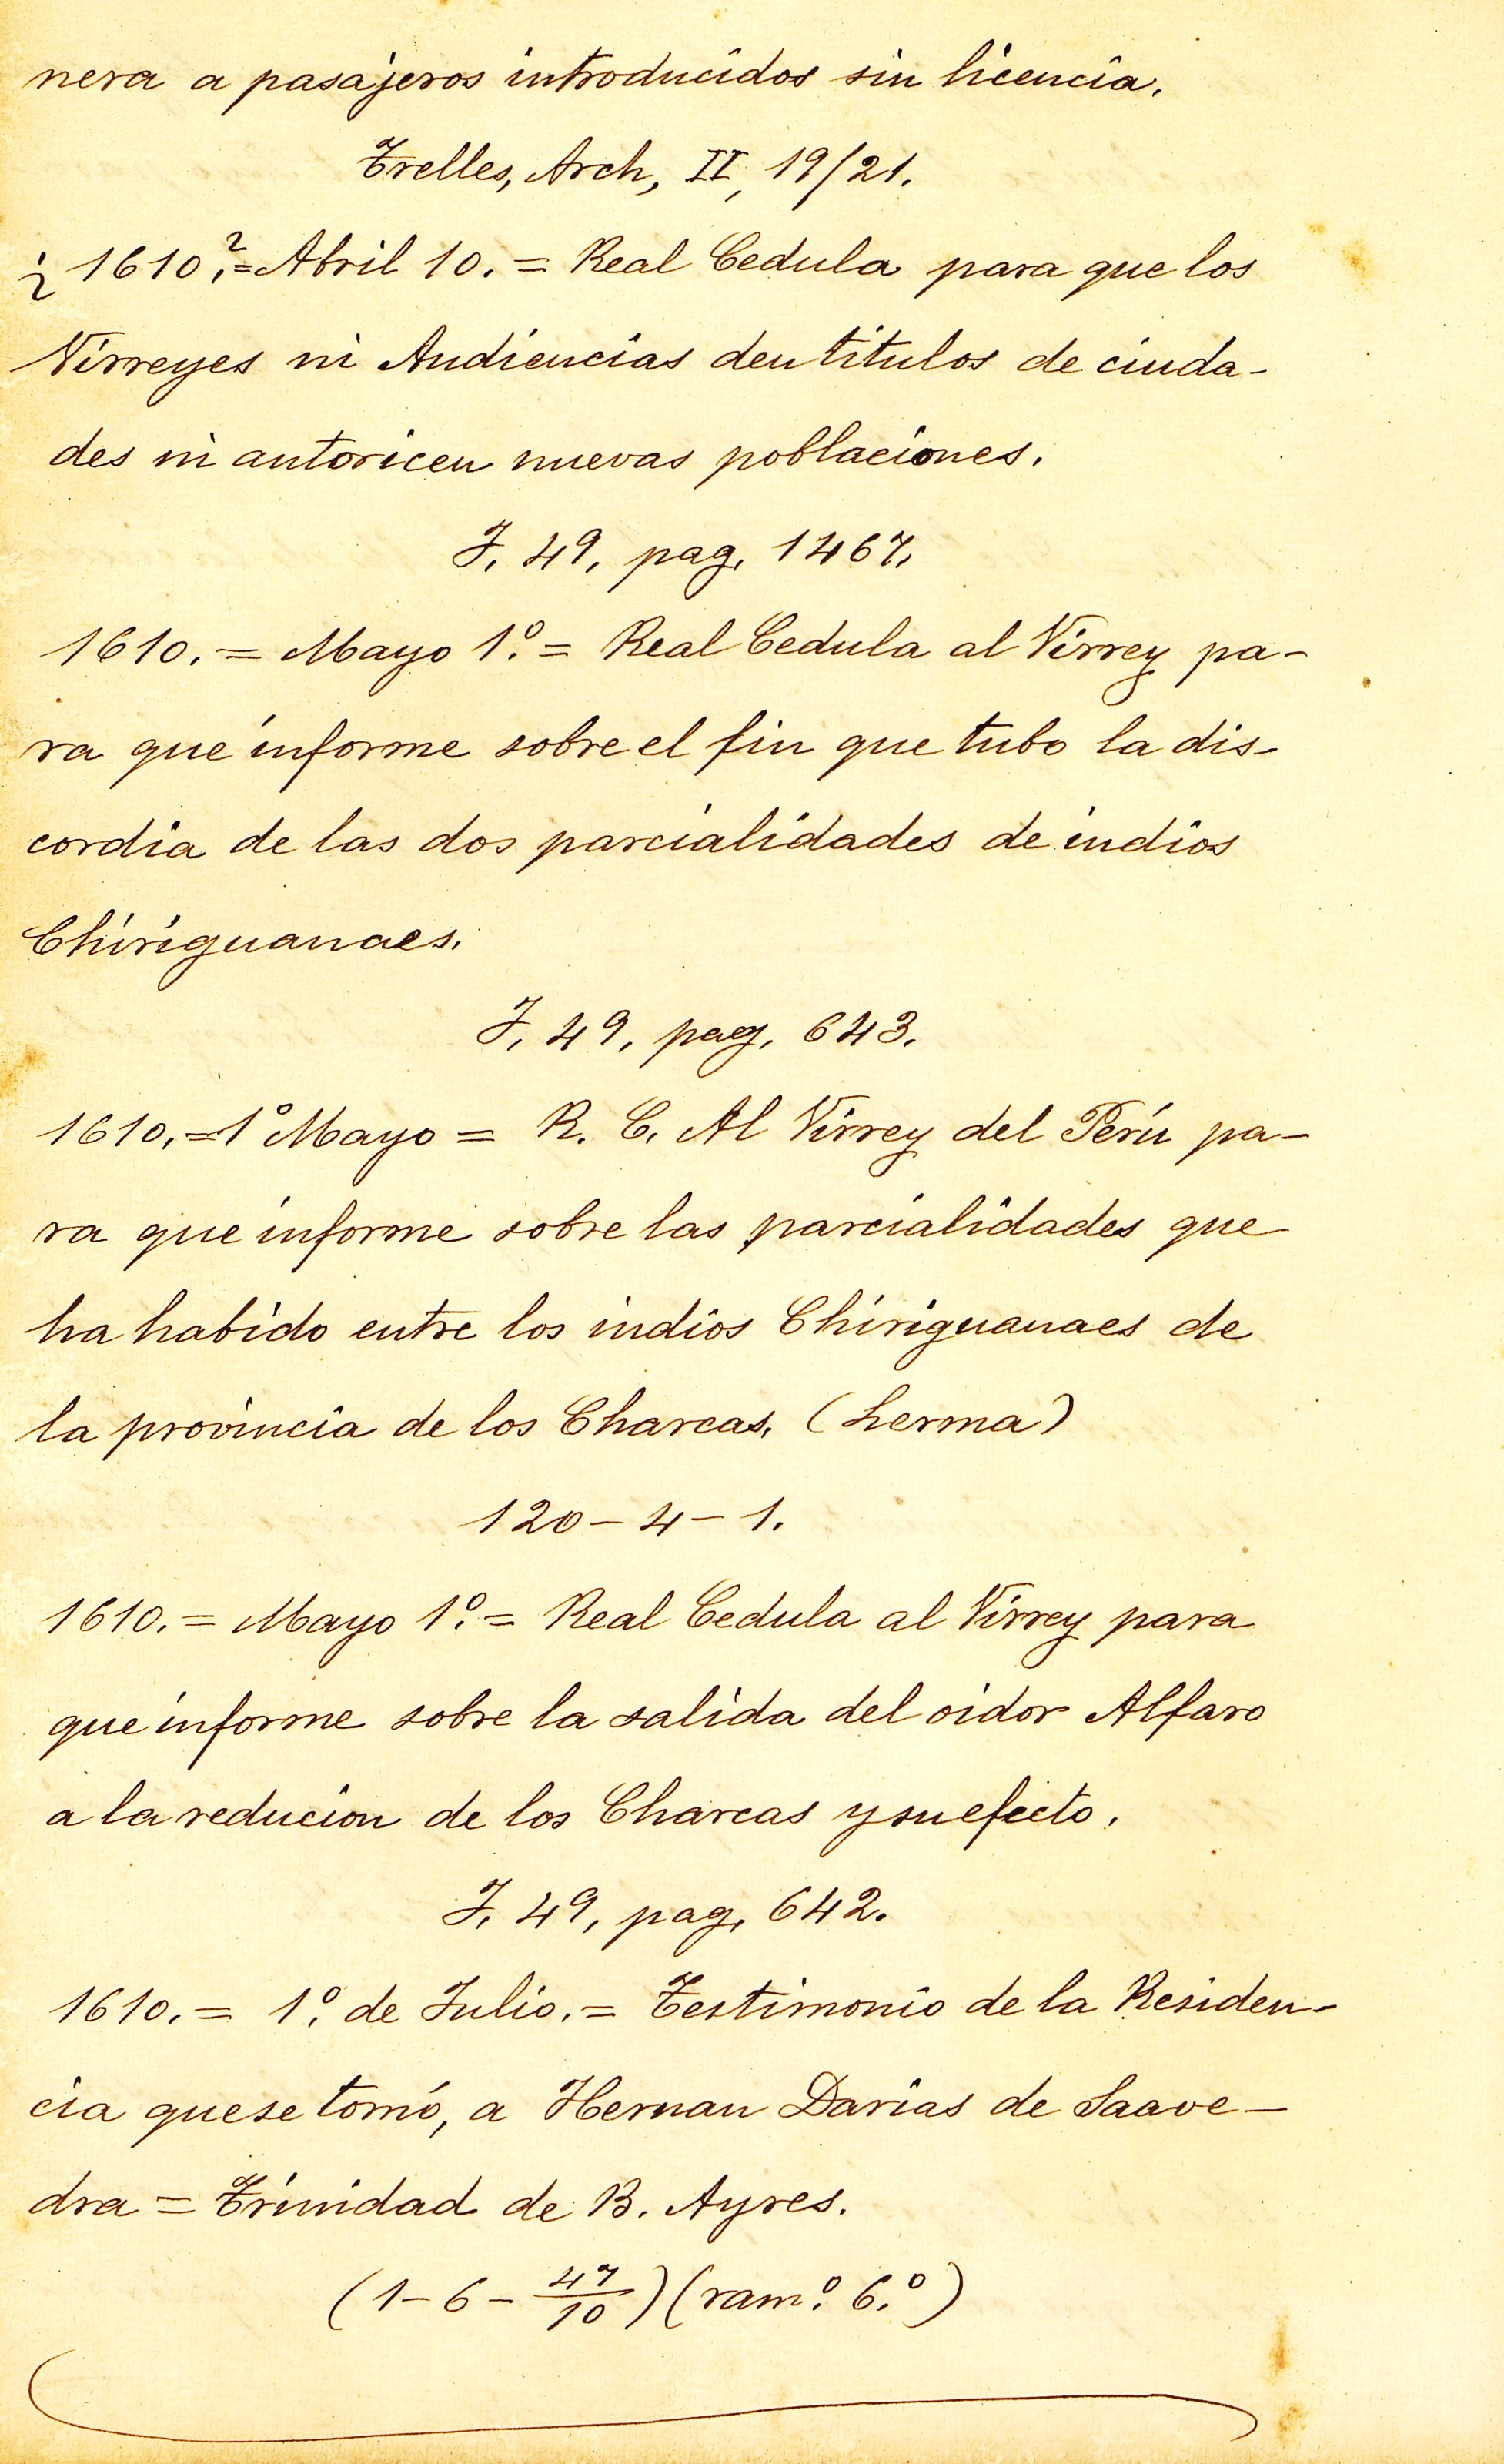 nera a pasajeros introducidos sin licencia.
Trelles, Arch, II, 19/21.
¿1610?.=Abril 10.= Real Cedula para que los
Virreyes ni Audiencias den titulos de ciuda-
des ni autoricen nuevas poblaciones.
J, 49, pag, 1467,
1610.= Mayo 1º.= Real Cedula al Virrey pa-
ra que informe sobre el fin que tubo la dis-
cordia de las dos parcialidades de indios
Chiriguanaes.
J, 49, pag, 643.
1610.=1º Mayo = R. C. Al Virrey del Perú pa-
ra que informe sobre las parcialidades que
ha habido entre los indios Chiriguanaes de
la provincia de los Charcas, (Lerma)
120-4-1.
1610.= Mayo 1º.= Real Cedula al Virrey para
que informe sobre la salida del oidor Alfaro
a la reducion de los Charcas y su efecto.
J, 49, pag, 642.
1610.= 1º. de Julio.= Testimonio de la Residen-
cia que se tomó, a Hernan Darias de Saave-
dra = Trinidad de B. Ayres.
(1-6-47/10)(ramº. 6.º)